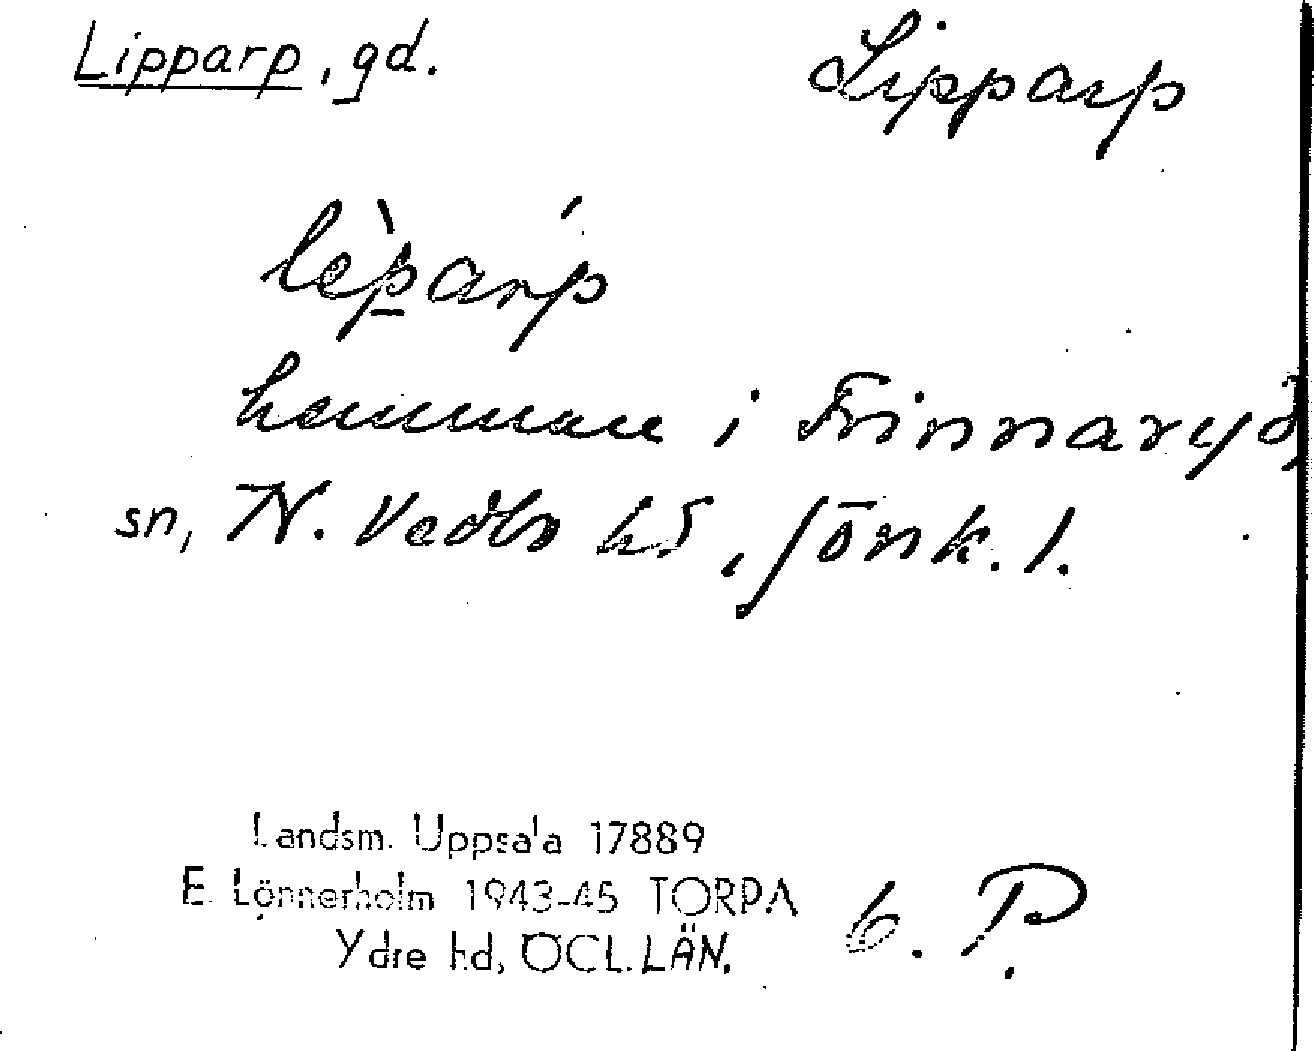 Lipparp, gd. Lipparp
lèparp´
hemman i Frinnaryd,
sn, N. Vedbo hd, Jönk. l.
Landsm. Uppsala 17889
E. Lönnerholm 1943-45 TORPA
Ydre hd, ÖGL. LÄN.
6. P.